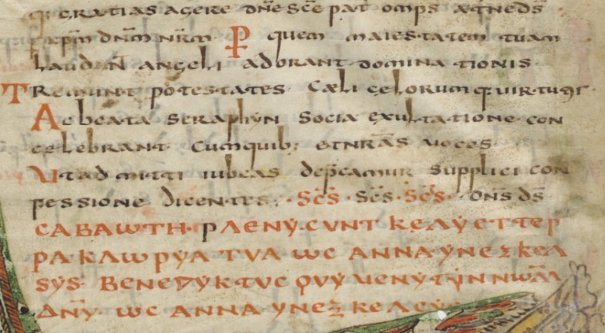 q; gratias agere dn̄e sc̄e pat omp̄s aetn̄e ds̄
xp̄m dn̄m nr̄m P quem maiestatem tuam
laudan̄ angeli adorant dominationis
Tremunt potestates Caeli celorum q; uirtutes
Ac beata seraphyn socia exultatione con
celebrant Cumquib; et nr̄as uoces
Ut admitti iubeas dep̄camur supplici con
fessione dicentes. Sc̄s Sc̄s Sc̄s Dn̄s ds̄
CABAωTH. PLENY. CVNT KELY ET TER
PA KLωPYA TVA ωC ANNA YNEZ KEL
SYS BENEDYKTVC QVY VENYT YN NωM
DN̄Y ωC ANNA YNEZ